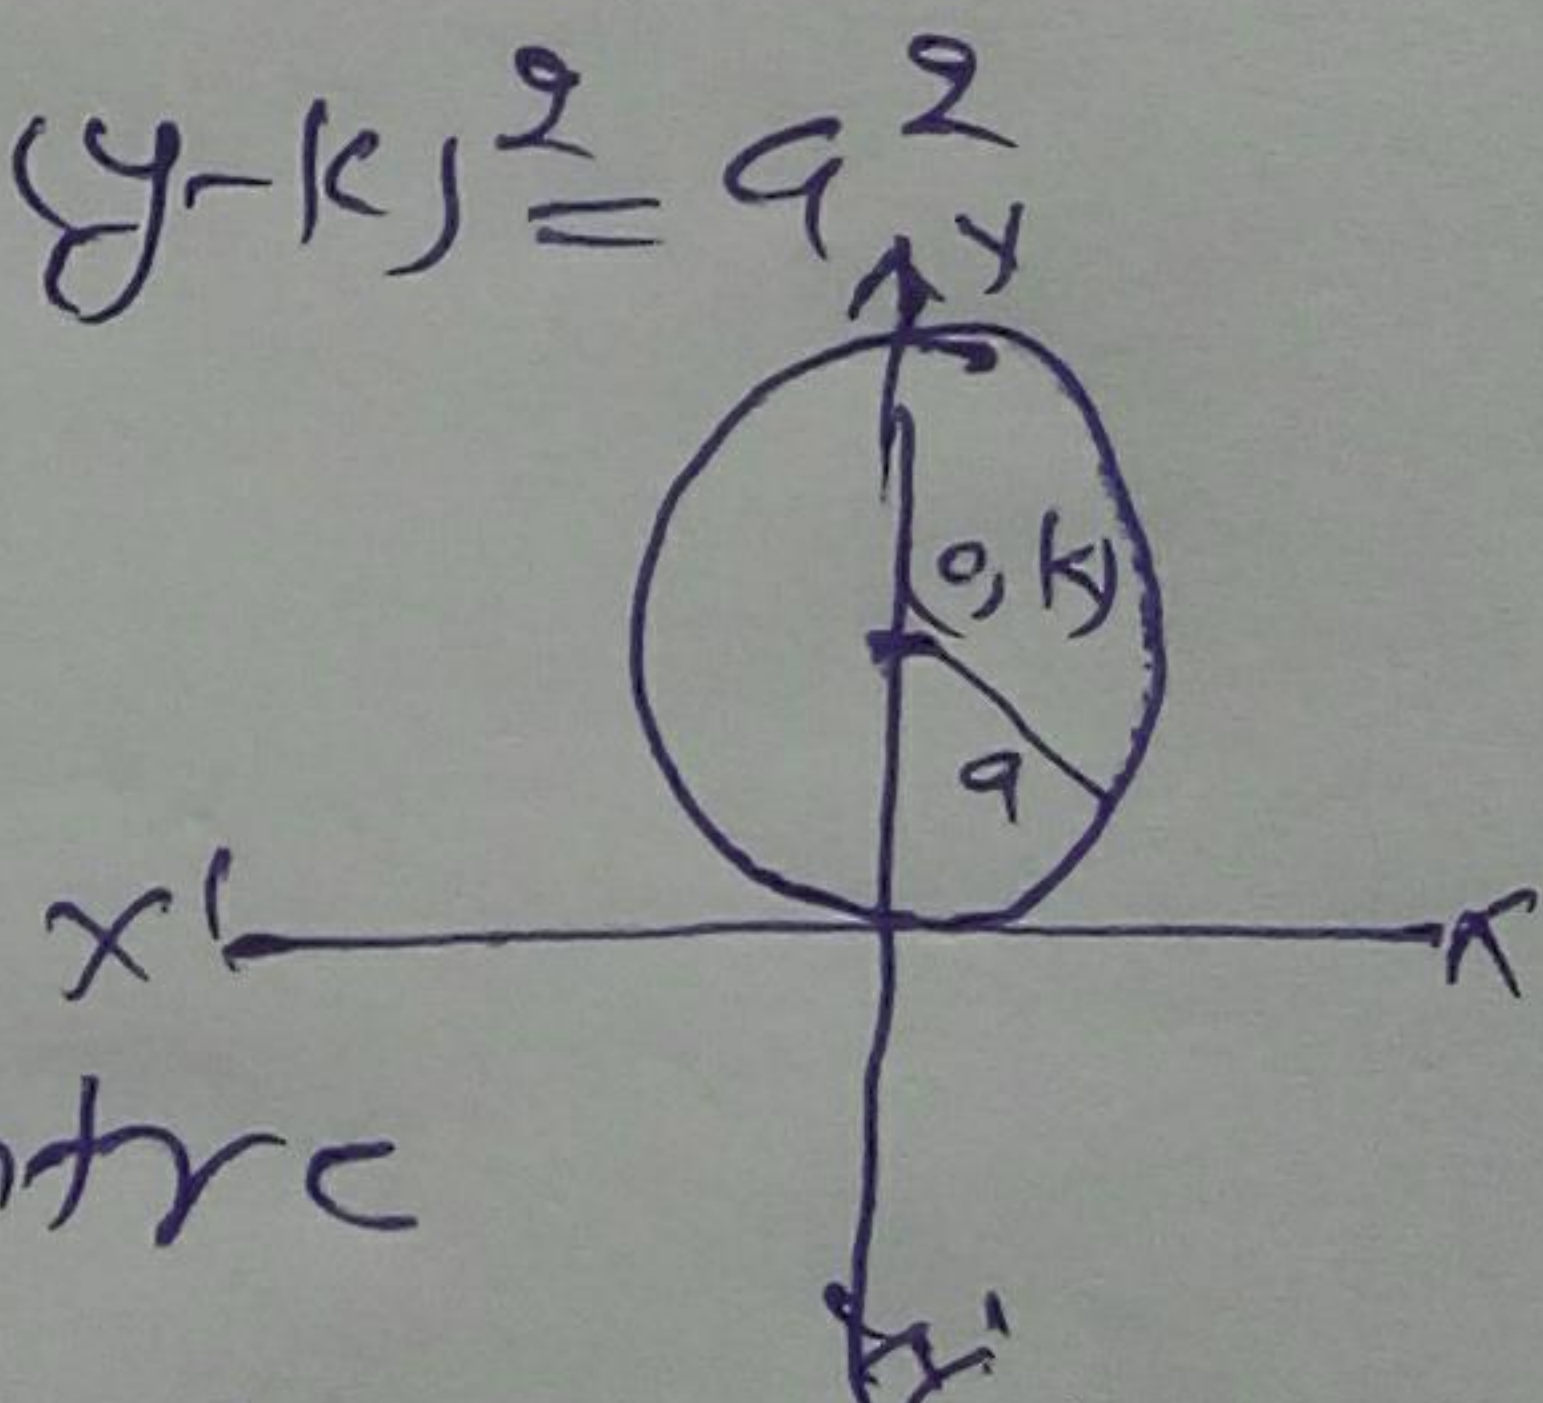 (y-k)² = a²
y
(0, k)
a
x'
x
ntre
y'